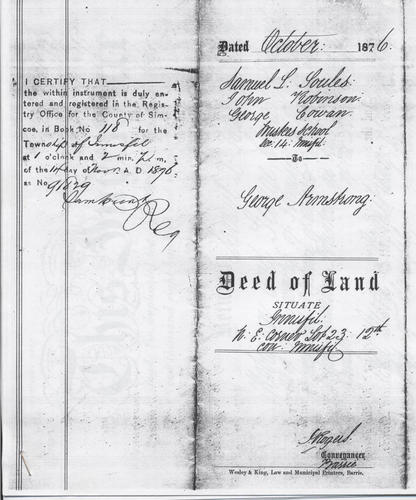 I CERTIFY THAT
the within instrument is duly en-
tered and registered in the Regis-
try Office for the County of Sim-
coe, in Book No 118 for the
Township of Innisfil
at 1 o'clock and 2 min. P. m,
of the 14 day of Novr. A. D. 1876
as No 91829
Reg
Dated October: 1876:
Samuel L. Soules
John Robinson
George Cowan
Trustees School
Sec. 14: Innisfil
To
George Armstrong:
Deed of Land
SITUATE
Innisfil:
N: E: Corner Lot 23: 12th
con: Innisfil
Rogers
Conveyancer
Barrie
Wesley & King, Law and Municipal Printers, Barrie.